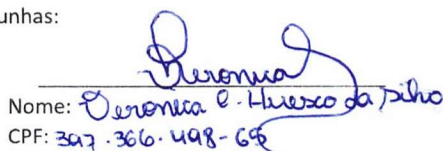 unhas:
Veronica
Nome: Veronica C. Huesco da Silva
CPF: 397.366.498-69